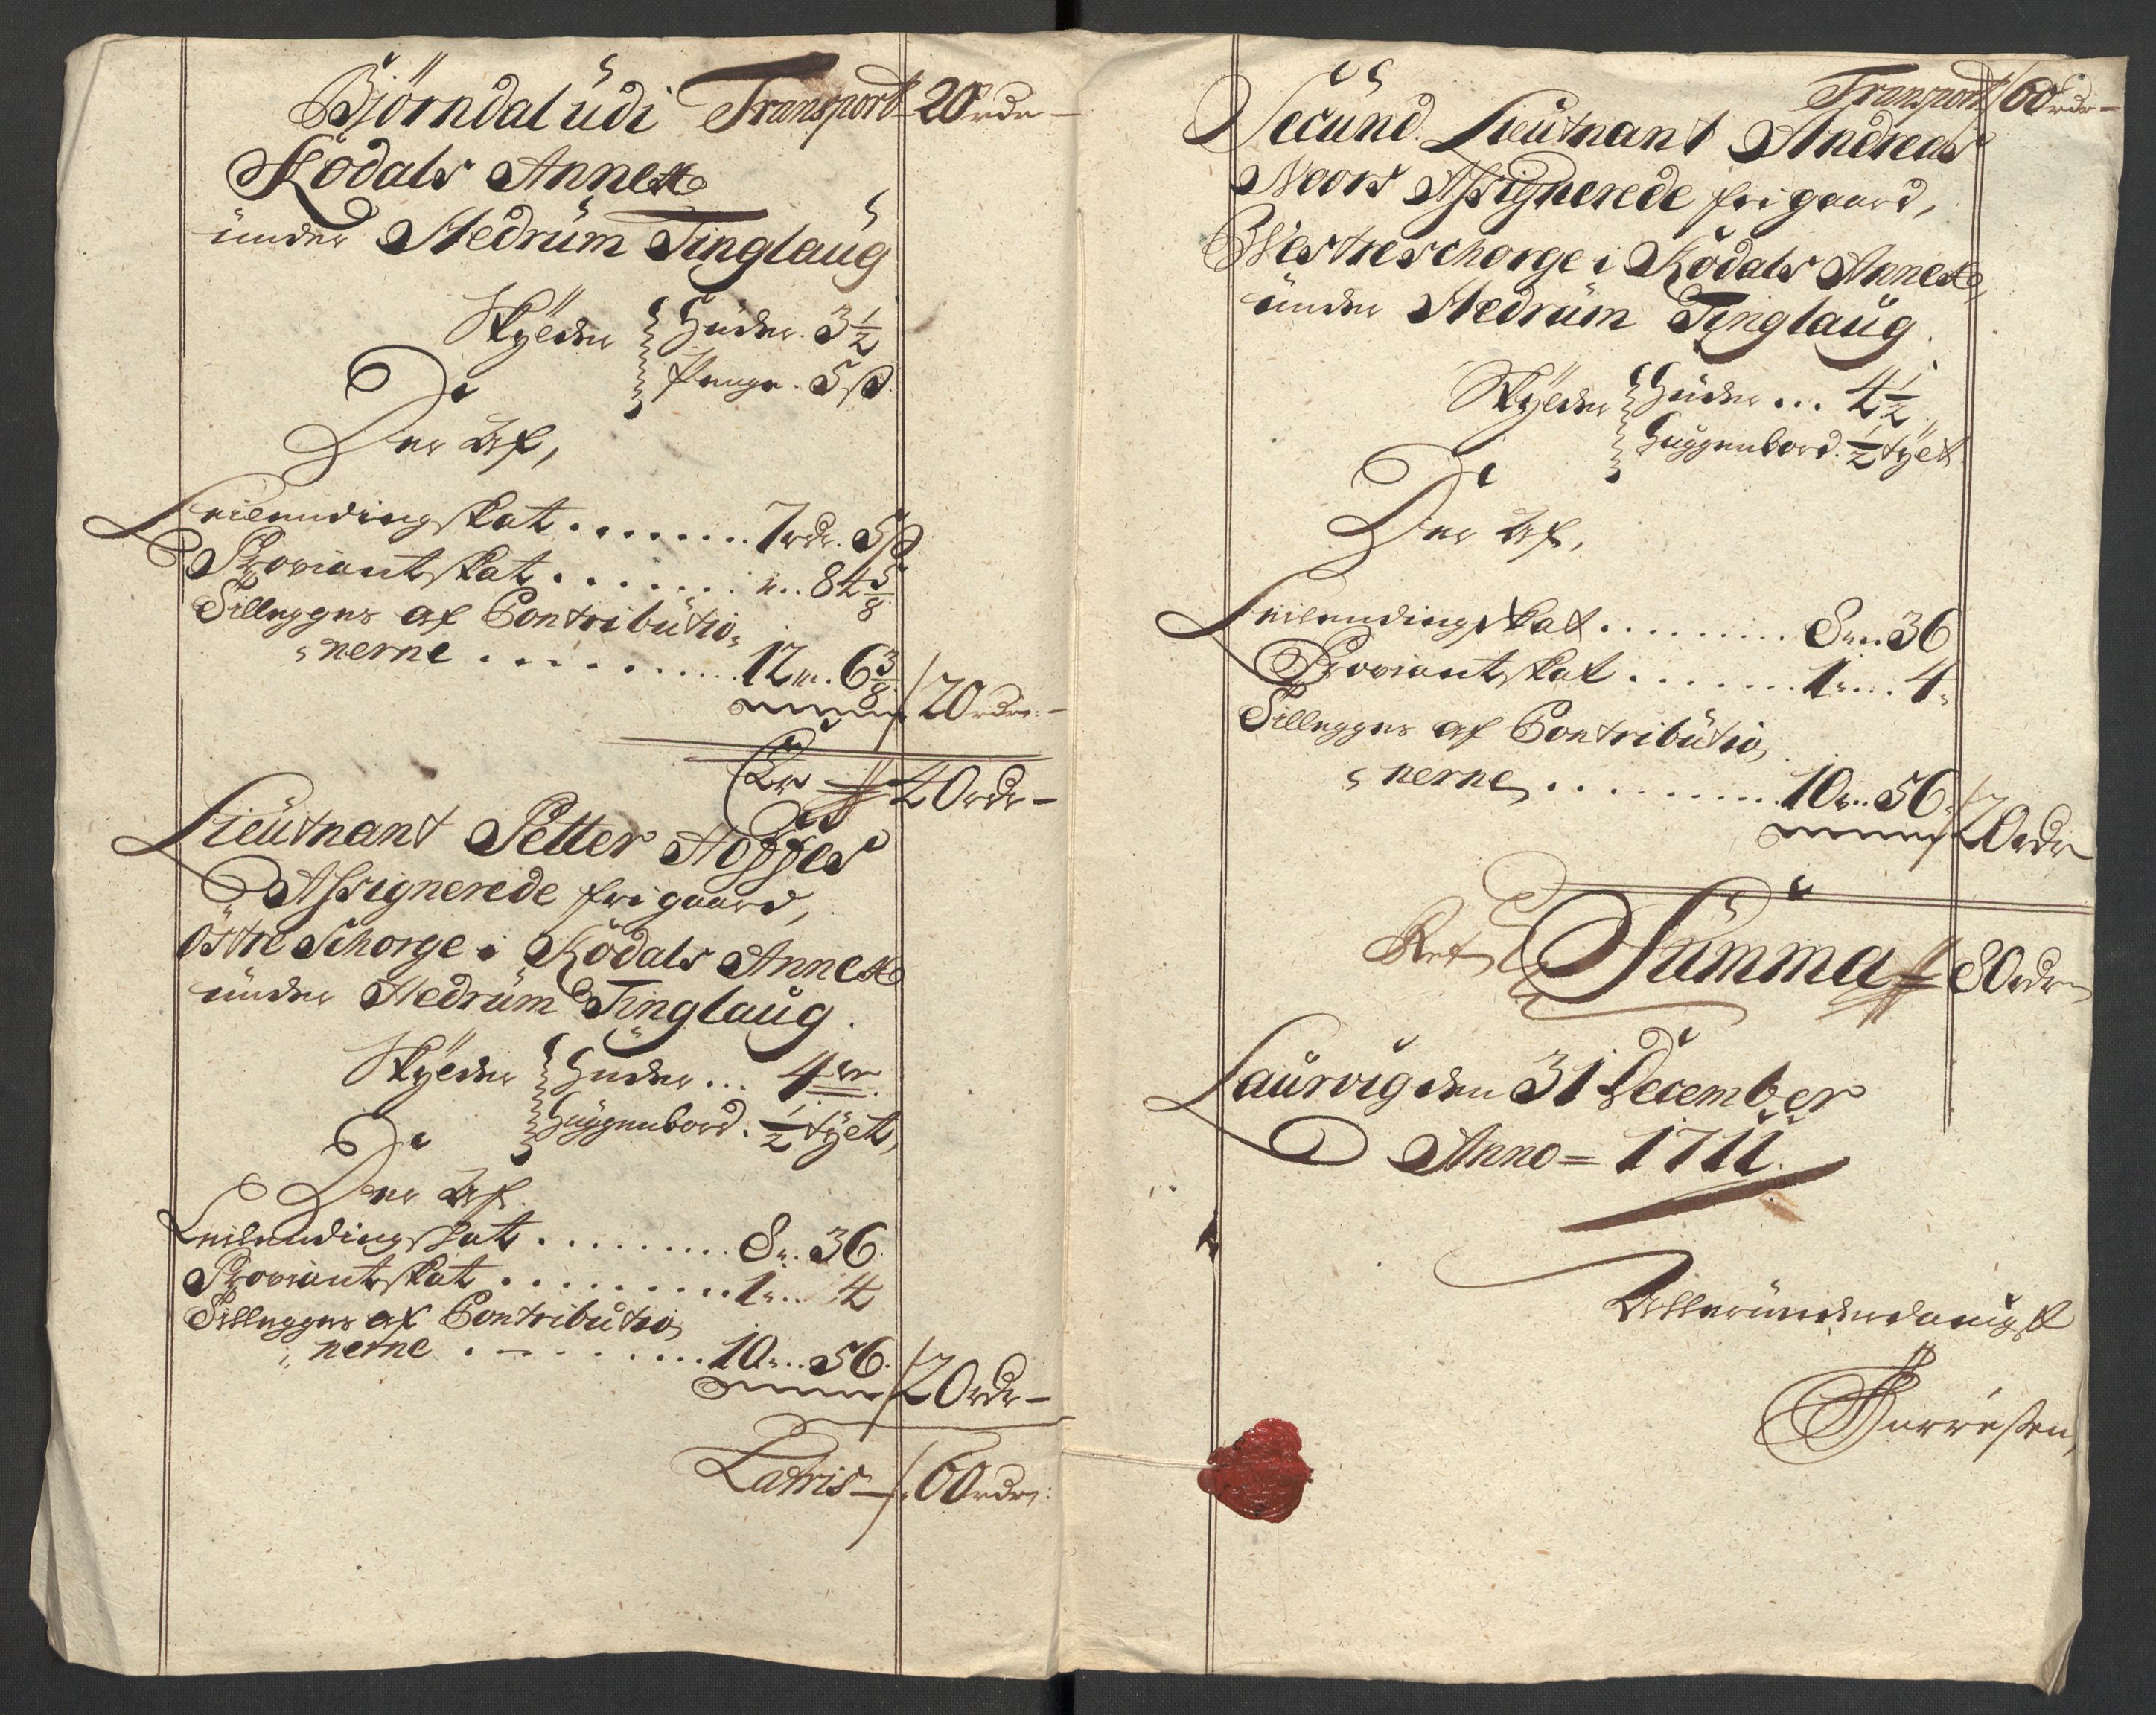 Biörndal udi Transport 20 rdr —
Kiödals Annex
under Hedrum Tinglaug
Skylder Huder. 3 1/2
Penge. 5 ß
Der Af,
Leilendingskat ........ 7 rdr. 5 ß
Proviantskat ....... „.. 84 5/8
Tillegges af Contributio„
„nerne .......... 12 „. 6 3/8 / 20 rdr: —
Er 40 rdr —
Lieutnant Petter Hoffes
Assignerede frigaard,
östre Schorge i Kiödals Annex
under Hedrum Tinglaug.
Skylder Huder ... 4 er
Huggenbord. 1/2 tyet,
Der Af.
Leilendingskat ......... 8 „. 36.
Proviantskat .......... 1 „.. 4
Tillegges af Contributio„
„nerne .......... 10 „.. 56. / 20 rdr —
Latris — /: 60 rdr:
Transport / 60 rdr —
Secund Lieutnant Andreas
Noors Assignerede frigaard,
Westreschorge i Kiödals Annex,
under Hedrum Tinglaug.
Skylder Huder ... 4 1/2,
Huggenbord. 1/2 tyet
Der Af,
Leilendingskat ......... 8 „.. 36
Proviantskat ....... 1 „... 4„
Tillegges af Contributio„
„nerne .......... 10 „.. 56. / 20 rdr
Summa 80 rdr
Laurvig den 31 December
Anno = 1711.
Allerunderdanigst